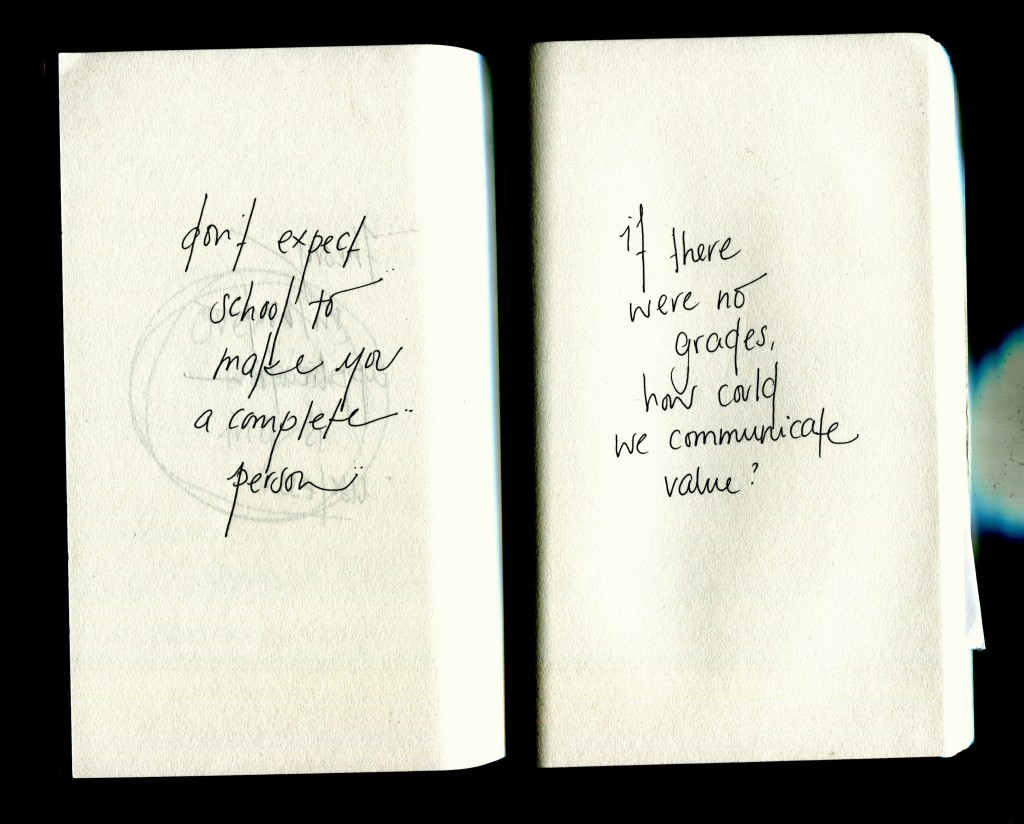 don't expect
school to
make you
a complete
person
if there
were no
grades,
how could
we communicate
value?